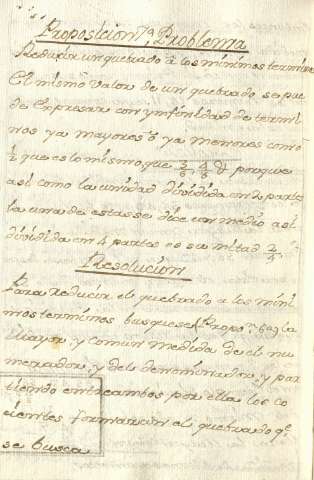 Proposicion 7ª Problema
Reducir un quebrado à los minimos terminos
El mismo valor de un quebrado se pue
de Expresar con ynfinidad de termi
nos ya mayores ò ya menores como
½ que es lo mismo que 3/6 4/8 & porque
asi como la unidad dividida en 2 partes
la una de estas se dice un medio asi
dividida en 4 partes es su mitad 2/4
Resolucion
Para Reducir el quebrado a los mini
mos terminos busquese (Propoⁿ 6ª) la
mayor, y comun medida de el nu
merador, y del denominador, y par
tiendo entreambos por ella los co
cientes formaràn el quebrado qᵉ
se busca